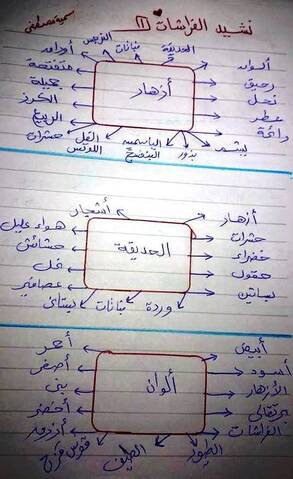 نشيد الفراشات (١)
سمية مصطفى
أزهار
الحديقة
نباتات
النرجس
أوراق
ألوان
متفتحة
رحيق
جميلة
نحل
الكرز
عطر
الربيع
رائحة
حشرات
يشم
بذور
الياسمين
البنفسج
الفل
اللوتس
الحديقة
أشجار
أزهار
هواء عليل
حشرات
حشائش
خضراء
نحل
حقول
عصافير
بساتين
بستاني
نباتات
وردة
ألوان
أحمر
أبيض
أصفر
أسود
بني
الأزهار
أخضر
برتقالي
أزرق
الفراشات
قوس قزح
الطيف
الطيور